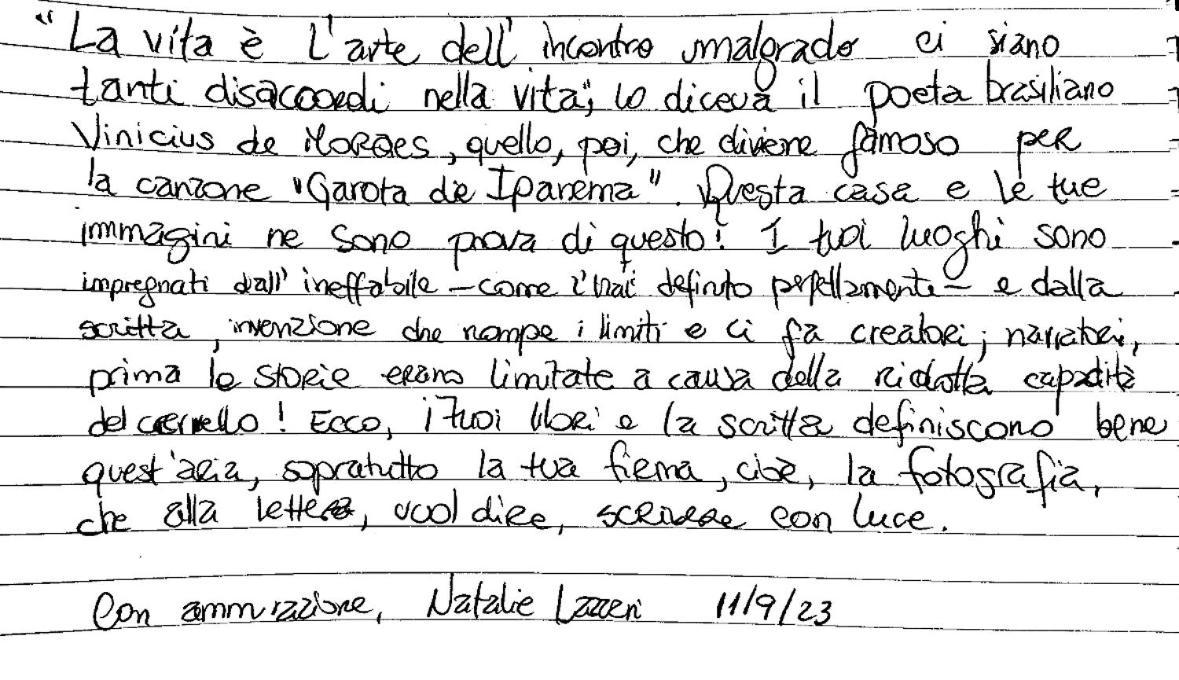 "La vita è l'arte dell'incontro malgrado ci siano
tanti disaccordi nella vita", lo diceva il poeta brasiliano
Vinicius de Moraes, quello, poi, che diviene famoso per
la canzone "Garota de Ipanema". Questa casa e le tue
immagini ne sono prova di questo! I tuoi luoghi sono
impregnati dall'ineffabile – come l'hai definito perfettamente – e dalla
scritta, invenzione che rompe i limiti e ci fa creatori; narratori,
prima le storie erano limitate a causa della ridotta capacità
del cervello! Ecco, i tuoi libri e la scritta definiscono bene
quest'aria, sopratutto la tua firma, cioè, la fotografia,
che alla lettera, vuol dire, scrivere con luce.
Con ammirazione, Natalie 11/9/23